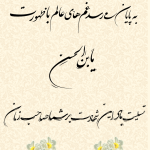 به پایان می‌رسد غم‌های عالم با ظهورت
یا بن الحسن
تسلیت باد این شهادت بر شما صاحب زمان